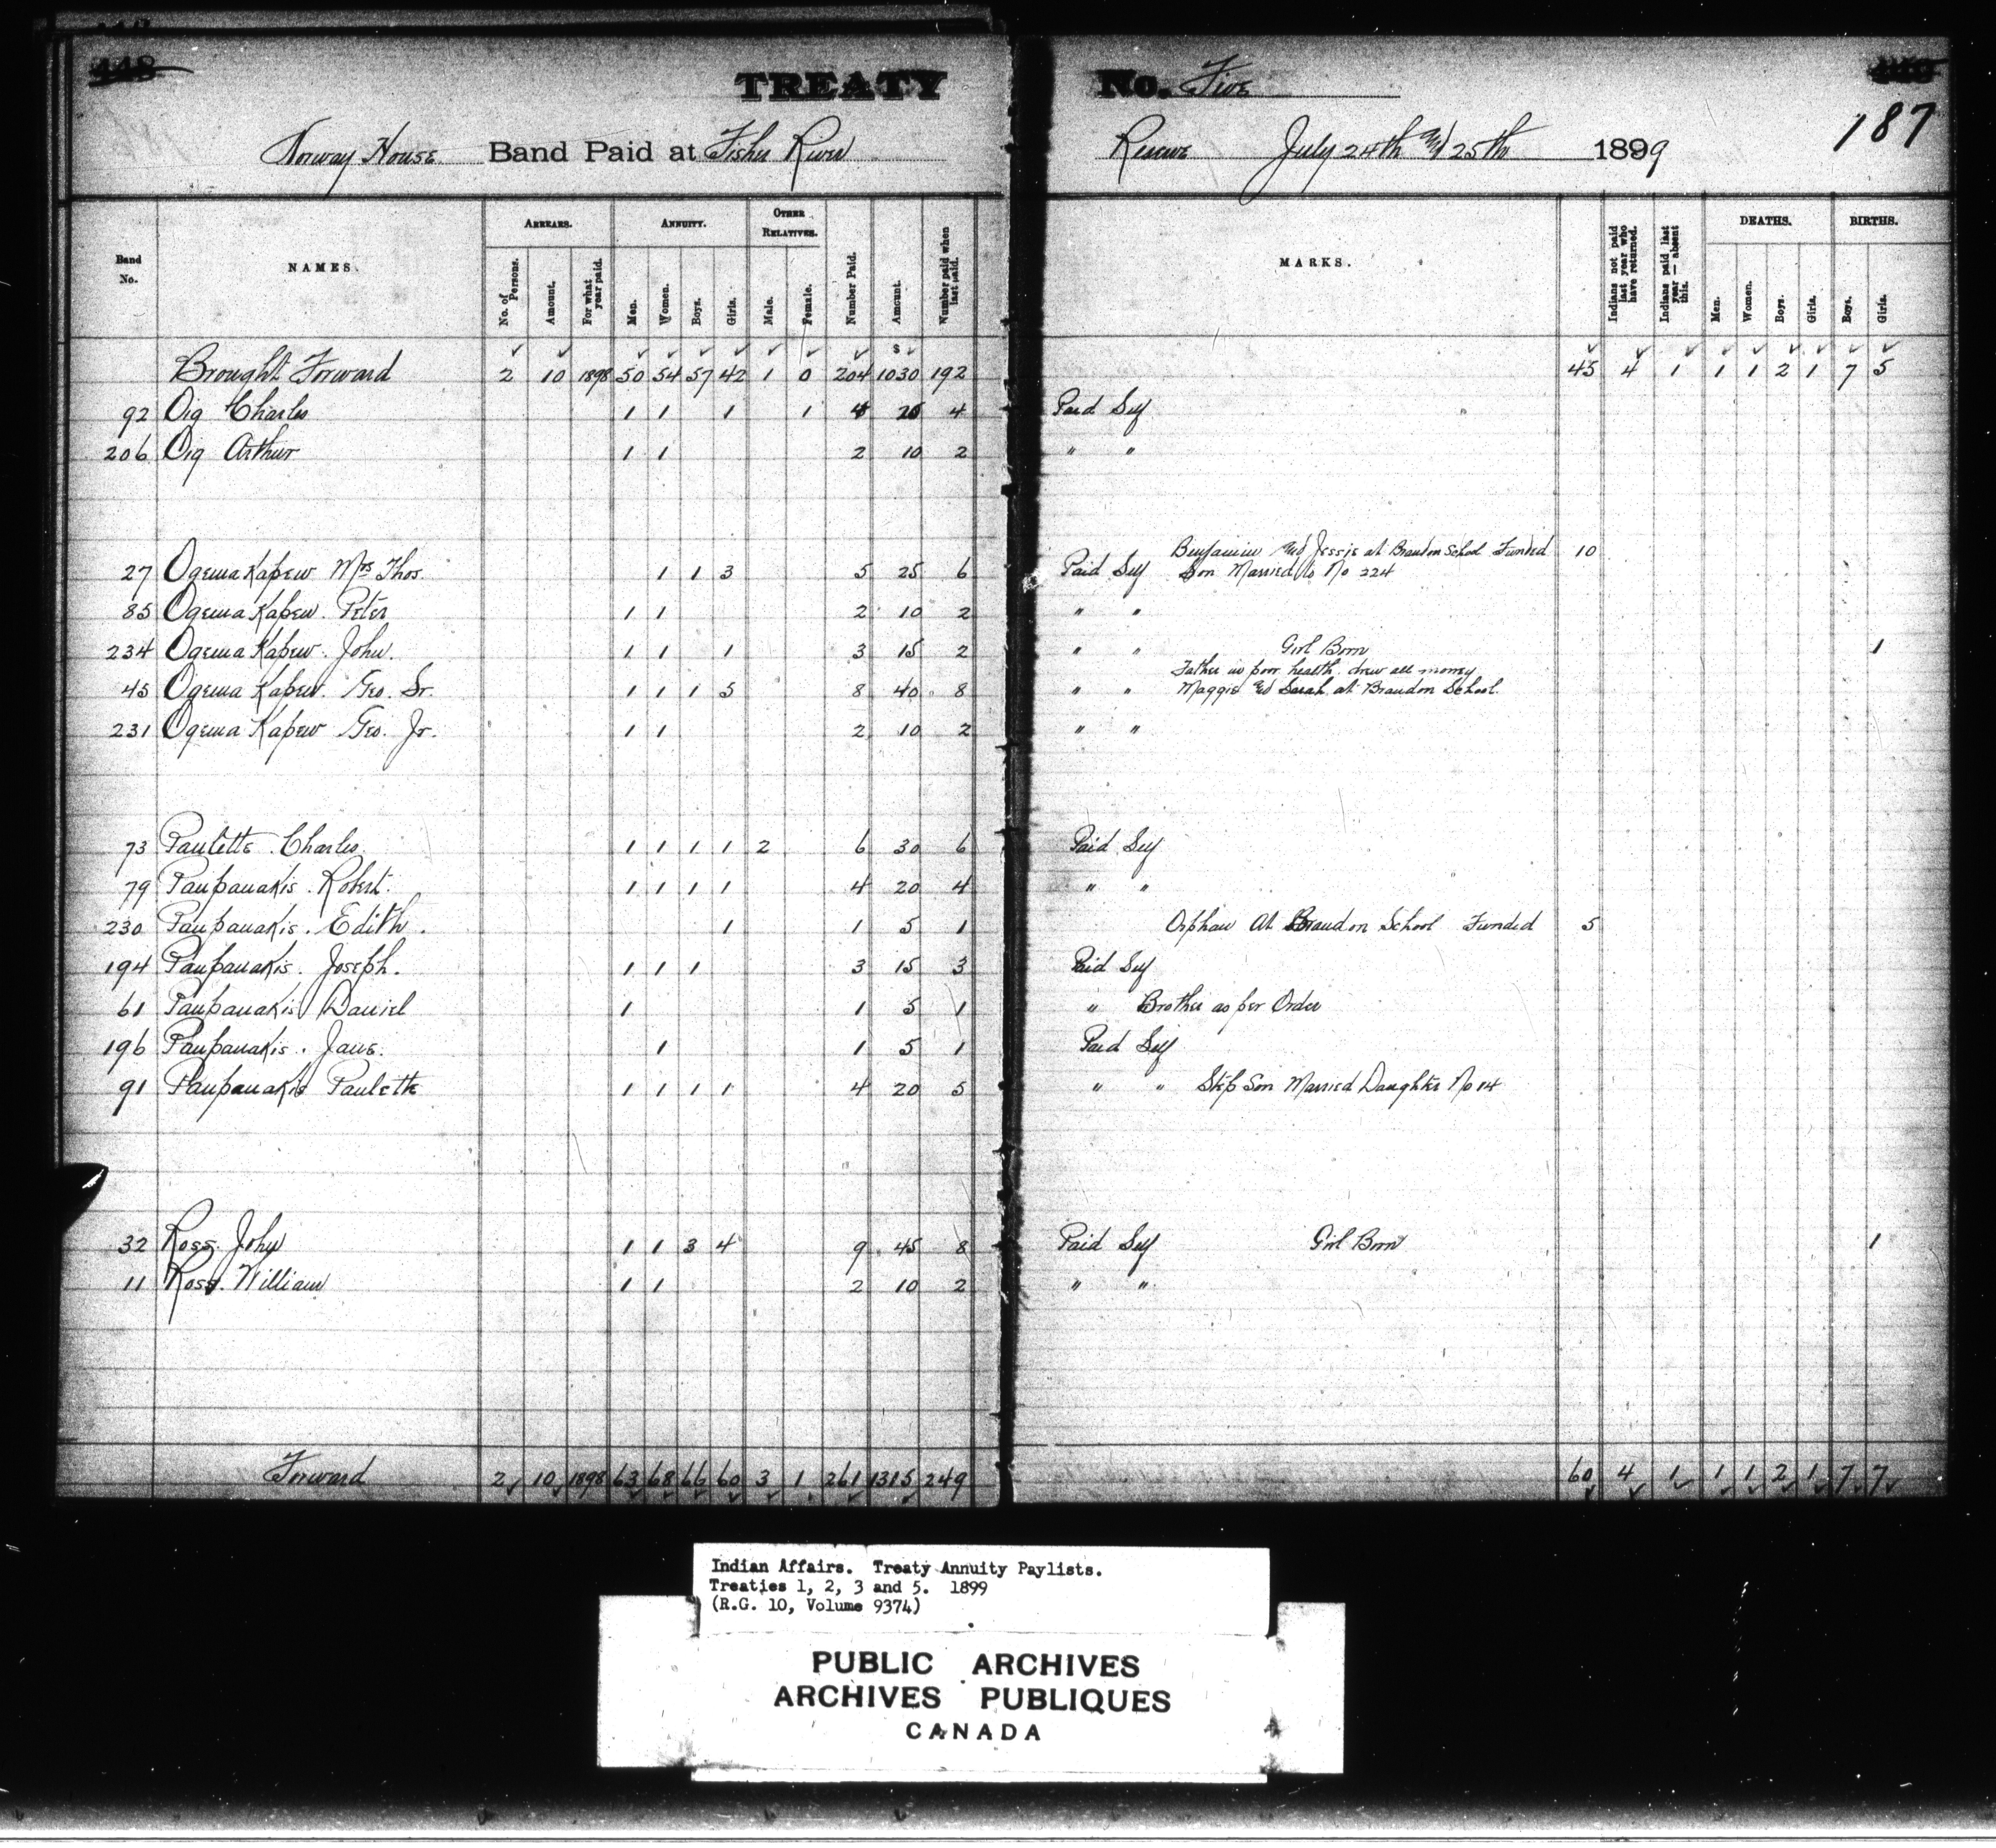 448
TREATY No. Five
187
Norway House Band Paid at Fisher River Reserve July 24th and 25th 1899
Band No. NAMES. ARREARS. ANNUITY. OTHER RELATIVES. Number Paid. Amount. Number paid when last paid. MARKS. Indians not paid last year who have returned. Indians paid last year — absent this. DEATHS. BIRTHS.
No. of Persons. Amount. For what year paid. Men. Women. Boys. Girls. Male. Female. Men. Women. Boys. Girls. Boys. Girls.
Brought Forward 2 10 1898 50 54 57 42 1 0 204 $ 1030 192 45 4 1 1 1 2 1 7 5
92 Oig Charles 1 1 1 1 4 20 4 Paid Self
206 Oig Arthur 1 1 2 10 2 " "
Benjamin and Jessie at Brandon School Funded 10
27 Ogema Kapew Mrs Thos. 1 1 3 5 25 6 Paid Self Son Married to No 224
85 Ogema Kapew. Peter 1 1 2 10 2 " "
234 Ogema Kapew. John. 1 1 1 3 15 2 " " Girl Born 1
Father in poor health. drew all money
45 Ogema Kapew. Geo. Sr. 1 1 1 5 8 40 8 " " Maggie and Sarah at Brandon School.
231 Ogema Kapew Geo. Jr. 1 1 2 10 2 " "
73 Paulette. Charles. 1 1 1 1 2 6 30 6 Paid Self
79 Paupanakis. Robert. 1 1 1 1 4 20 4 " "
230 Paupanakis. Edith. 1 1 5 1 Orphan At Brandon School Funded 5
194 Paupanakis. Joseph. 1 1 1 3 15 3 Paid Self
61 Paupanakis Daniel 1 1 5 1 " Brother as per Order
196 Paupanakis. Jane. 1 1 5 1 Paid Self
91 Paupanakis Paulette 1 1 1 1 4 20 5 " " Step Son Married Daughter No 14
32 Ross. John 1 1 3 4 9 45 8 Paid Self Girl Born 1
11 Ross. William 1 1 2 10 2 " "
Forward 2 10 1898 63 68 66 60 3 1 261 1315 249 60 4 1 1 1 2 1 7 7
Indian Affairs. Treaty Annuity Paylists.
Treaties 1, 2, 3 and 5. 1899
(R.G. 10, Volume 9374)
PUBLIC ARCHIVES
ARCHIVES PUBLIQUES
CANADA